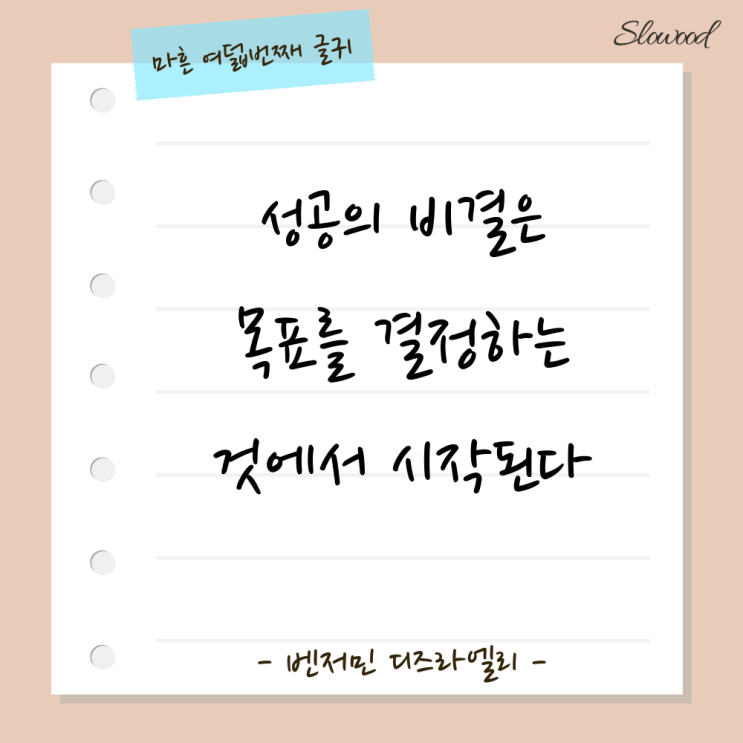 Slowood
마흔 여덟번째 글귀
성공의 비결은
목표를 결정하는
것에서 시작된다
- 벤저민 디즈라엘리 -